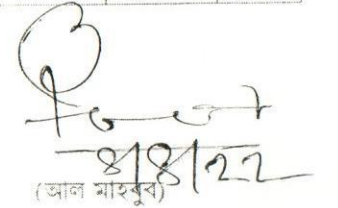 ৪/৪/২২
(আল মাহবুব)